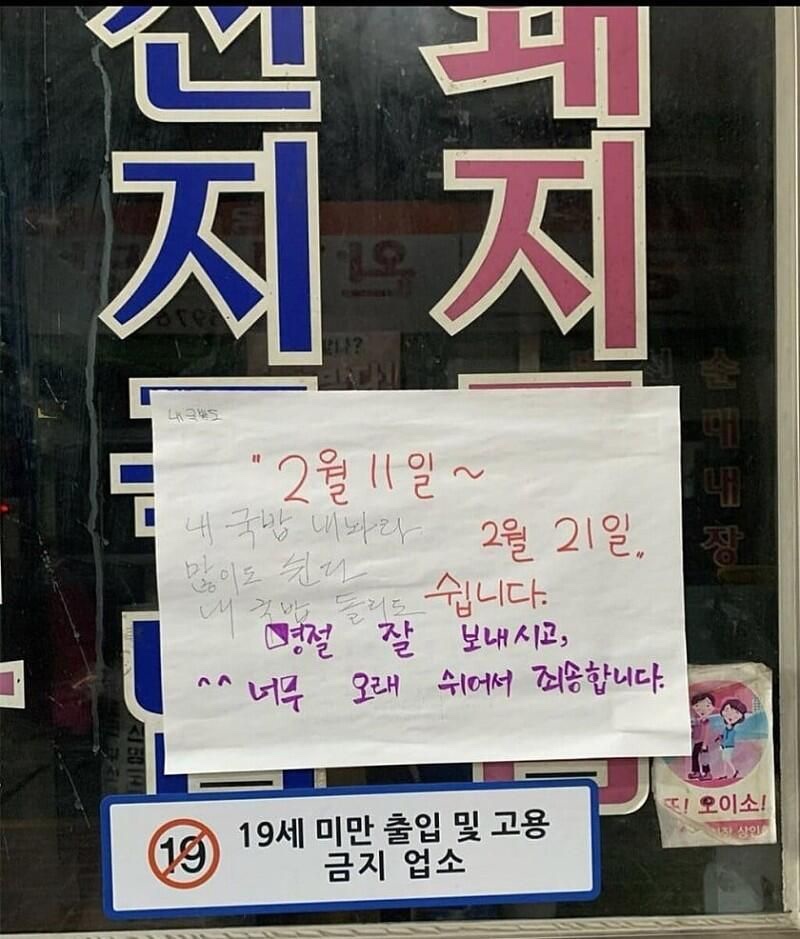 돼지
선지
순대내장
내 국밥도
" 2월 11일 ~
내 국밥 내놔라
2월 21일 "
많이도 쉰다
쉽니다.
내 국밥 돌리도
명절 잘 보내시고,
^^ 너무 오래 쉬어서 죄송합니다.
또! 오이소!
상인
19
19세 미만 출입 및 고용
금지 업소